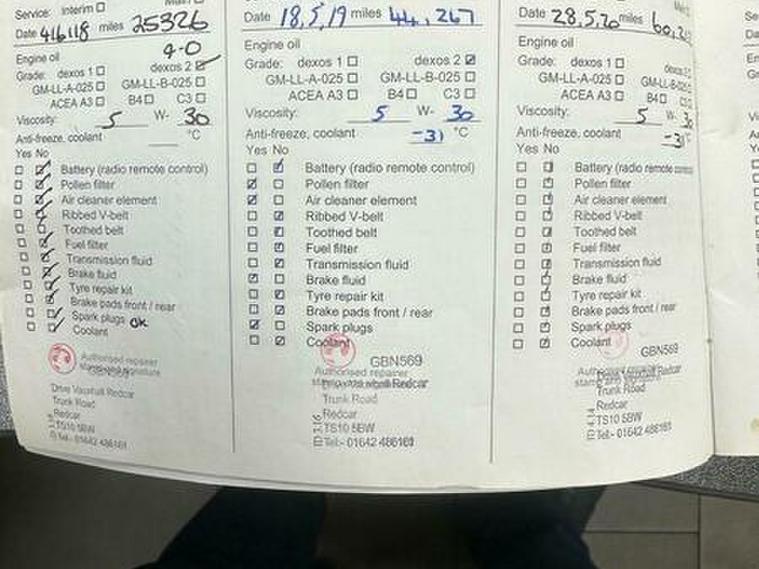 Service: Interim
Date 4/6/18 miles 25326
4-0
Engine oil
Grade: dexos 1 dexos 2
GM-LL-A-025 GM-LL-B-025
ACEA A3 B4 C3
Viscosity: 5 W- 30
Anti-freeze, coolant °C
Yes No
Battery (radio remote control)
Pollen filter
Air cleaner element
Ribbed V-belt
Toothed belt
Fuel filter
Transmission fluid
Brake fluid
Tyre repair kit
Brake pads front / rear
Spark plugs OK
Coolant
Authorised repairer
Drive Vauxhall Redcar
Trunk Road
Redcar
TS10 5BW
Tel:- 01642 486161
Date 18,5,19 miles 44,267
Engine oil
Grade: dexos 1 dexos 2
GM-LL-A-025 GM-LL-B-025
ACEA A3 B4 C3
Viscosity: 5 W- 30
Anti-freeze, coolant -31 °C
Yes No
Battery (radio remote control)
Pollen filter
Air cleaner element
Ribbed V-belt
Toothed belt
Fuel filter
Transmission fluid
Brake fluid
Tyre repair kit
Brake pads front / rear
Spark plugs
Coolant
GBN569
Authorised repairer
Redcar
Trunk Road
Redcar
TS10 5BW
Tel:- 01642 486161
Date 28,5,20 miles
Engine oil
Grade: dexos 1 dexos 2
GM-LL-A-025
ACEA A3 B4 C3
Viscosity: 5 W-
Anti-freeze, coolant -31 °C
Yes No
Battery (radio remote
Pollen filter
Air cleaner element
Ribbed V-belt
Toothed belt
Fuel filter
Transmission fluid
Brake fluid
Tyre repair kit
Brake pads front / rear
Spark plugs
Coolant
GBN569
Trunk Road
Redcar
TS10 5BW
Tel:- 01642 486161